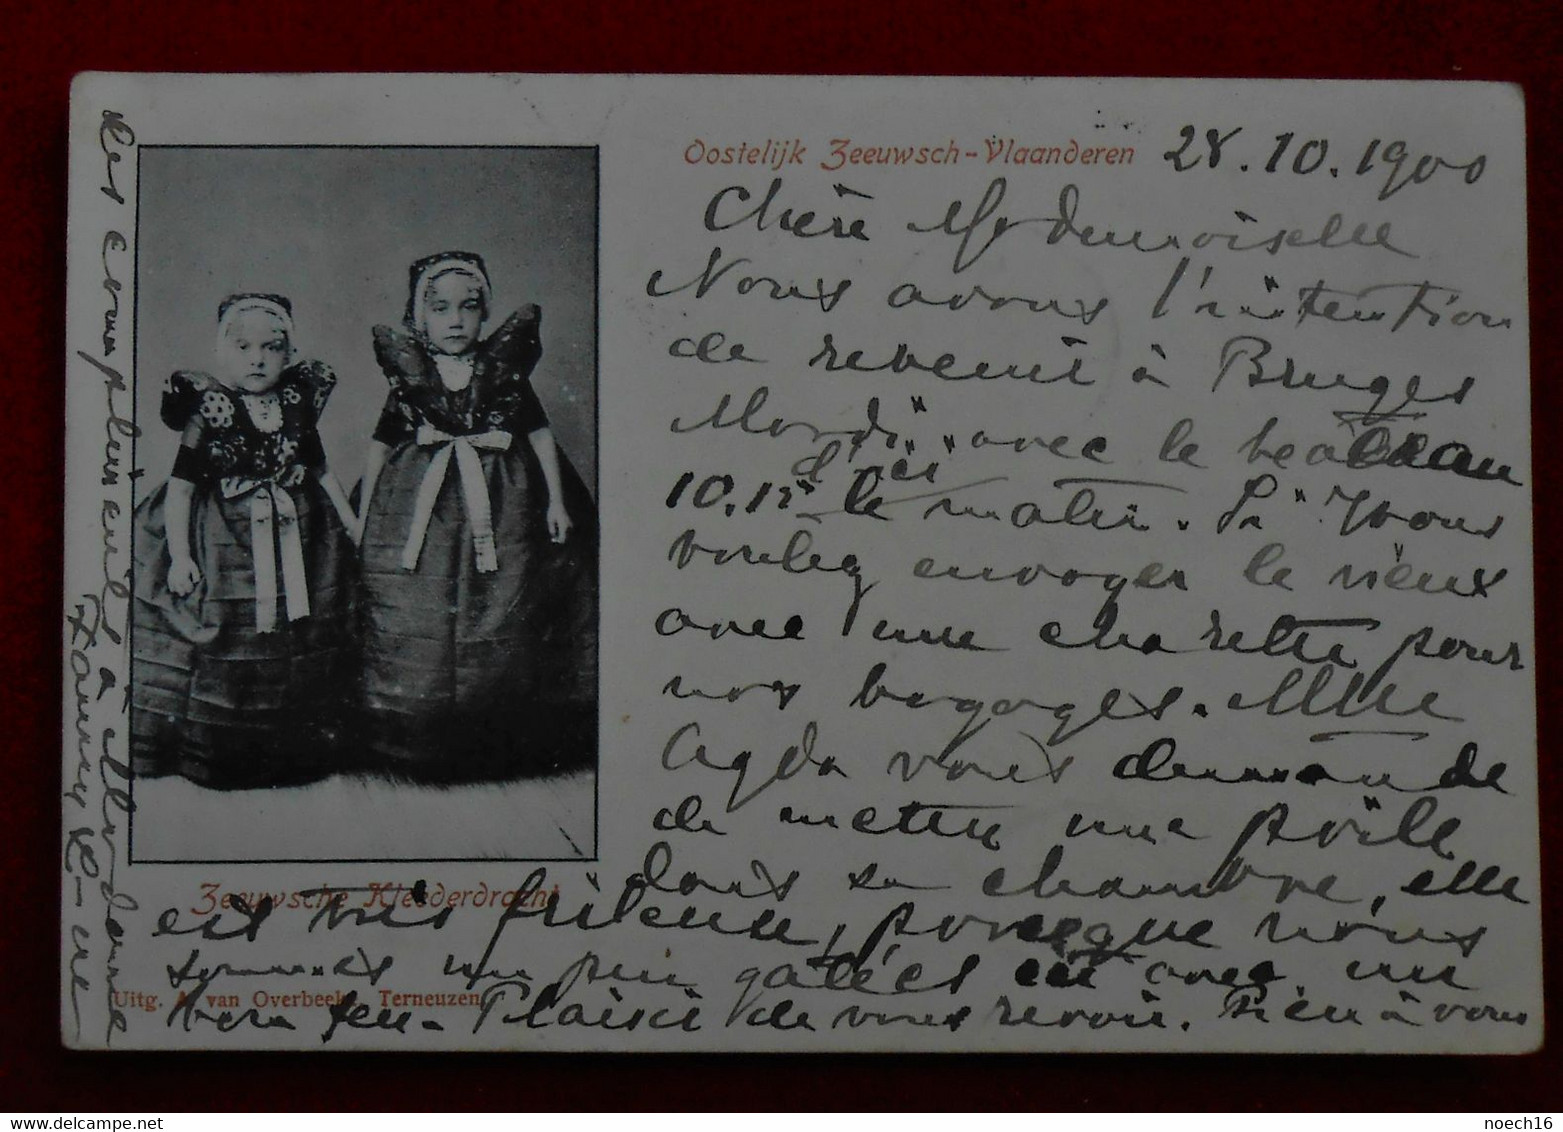 Oostelijk Zeeuwsch-Vlaanderen
28.10.1900
Chère Mademoiselle
Nous avons l'intention
de revenir à Bruges
Mardi avec le bateau
d'ici
10.15 le matin. Si Vous
voulez envoyer le vieux
avec une charette pour
nos bagages. Mlle
Agda vous demande
de mettre une poële
dans sa chambre, elle
est très frileuse, puisque nous
sommes un peu gatées ici avec un
bon feu. Plaisir de vous revoir. Bien à vous
Fanny
Les compliments à Madame
Zeeuwsche Kleederdracht
Uitg. A. van Overbeeke, Terneuzen
noech16
www.delcampe.net